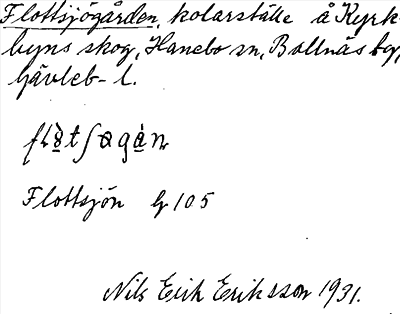 Flottsjögården, kolarställe å Kyrk-
byns skog, Hanebo sn, Bollnäs tg,
Gävleb- l.
Flottsjön G 105
Nils Erik Eriksson 1931.